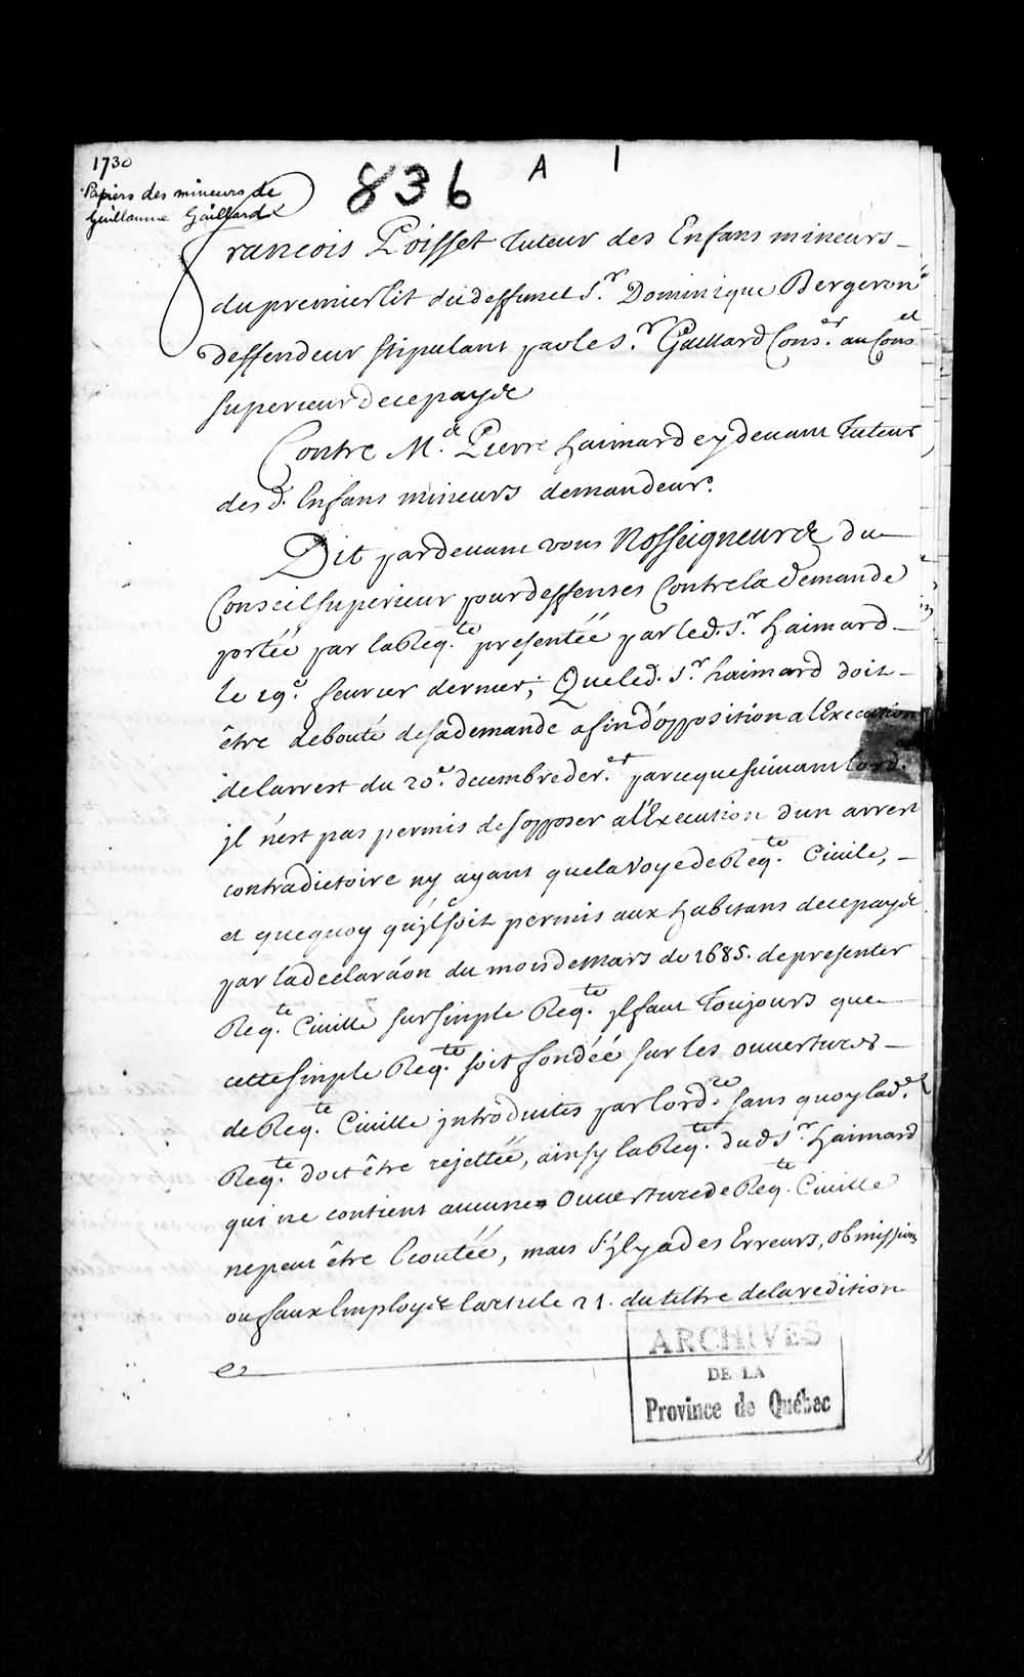 1730
Papiers des mineurs de
Guillaume Gaillard
836 A 1
Francois Poisset tuteur des Enfans mineurs
du premier lit du deffunct S.r Dominique Bergeron
deffendeur stipulant par le S.r Gaillard Cons.er au Cons.el
superieur de ce pays &
Contre M.e Pierre haimard cy devant Tuteur
des d. Enfans mineurs demandeur.
Dit pardevant vous Nosseigneurs du
Conseil superieur pour deffenses Contre la demande
portéé par la Req.te presentéé par le d. S.r haimard
le 19.e feurier dernier; Que led. S.r haimard doit
être debouté de sa demande afin d'opposition a l'Execution
de larrest du 20.e decembre der.er parce que suivant lord.
jl n'est pas permis de sopposer a l'Execution dun arrest
contradictoire ny ayant que la voye de Req.te Ciuile,
et quequoy qu'jl soit permis aux habitans de ce pays
par la declarâon du mois de Mars de 1685. de presenter
Req.te Ciuille sur simple Req.te jl faut Toujours que
cette simple Req.te soit fondéé sur les ouuertures
de Req.te Ciuille jntroduites par lord.ce sans quoy lad.e
Req.te doit être rejettéé, ainsy la Req.te dud S.r haimard
qui ne contient aucune ouuerture de Req.te Ciuille
ne peut être Ecoutéé, mais s'jl y a des Erreurs, obmissions
ou faux Employs larticle 21. du tiltre de la redition
ARCHIVES
DE LA
Province de Québec